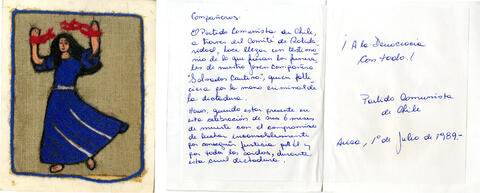 Compañeros:
El Partido Comunista de Chile,
a través del Comité de Solida
ridad, hace llegar un testimo
nio de lo que fueron los funera
les de nuestro joven compañero
"Salvador Cautivo", quien falle
ciera por la mano criminal de
la dictadura.
Hemos querido estar presente en
esta celebración de sus 6 meses
de muerte con el compromiso
de luchar incansablemente
por conseguir justicia por él y
por todos los caídos, durante
esta cruel dictadura.
¡A la Democracia
Con todo!
Partido Comunista
de Chile
Arica, 1º de Julio de 1989.-